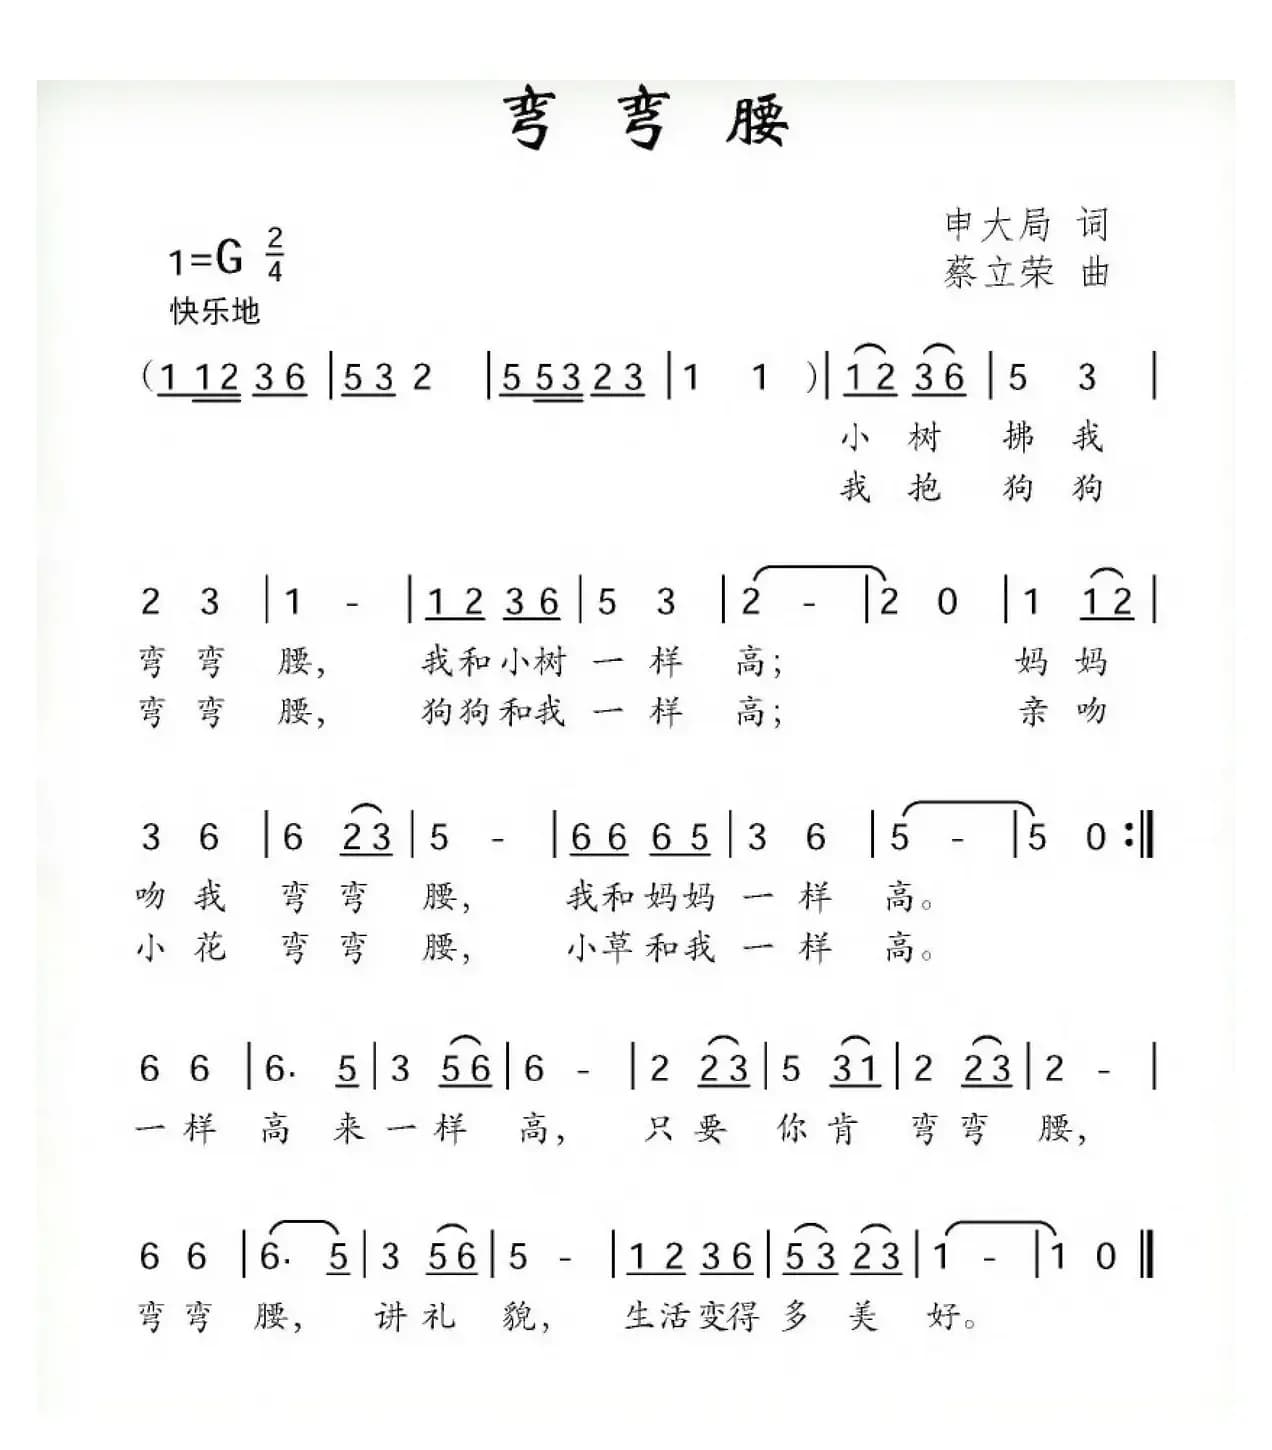 弯弯腰
申大局 词
1=G 2/4
蔡立荣 曲
快乐地
(1 12 3 6 | 5 3 2 | 5 53 2 3 | 1 1 )| 1 2 3 6 | 5 3 |
小 树 拂 我
我 抱 狗 狗
2 3 | 1 - | 1 2 3 6 | 5 3 | 2 - | 2 0 | 1 1 2 |
弯 弯 腰, 我和小树 一 样 高; 妈 妈
弯 弯 腰, 狗狗和我 一 样 高; 亲 吻
3 6 | 6 2 3 | 5 - | 6 6 6 5 | 3 6 | 5 - | 5 0 :‖
吻 我 弯 弯 腰, 我和妈妈 一 样 高。
小 花 弯 弯 腰, 小草和我 一 样 高。
6 6 | 6. 5 | 3 5 6 | 6 - | 2 2 3 | 5 3 1 | 2 2 3 | 2 - |
一 样 高 来 一 样 高, 只 要 你 肯 弯 弯 腰,
6 6 | 6. 5 | 3 5 6 | 5 - | 1 2 3 6 | 5 3 2 3 | 1 - | 1 0 ‖
弯 弯 腰, 讲 礼 貌, 生活变得 多 美 好。